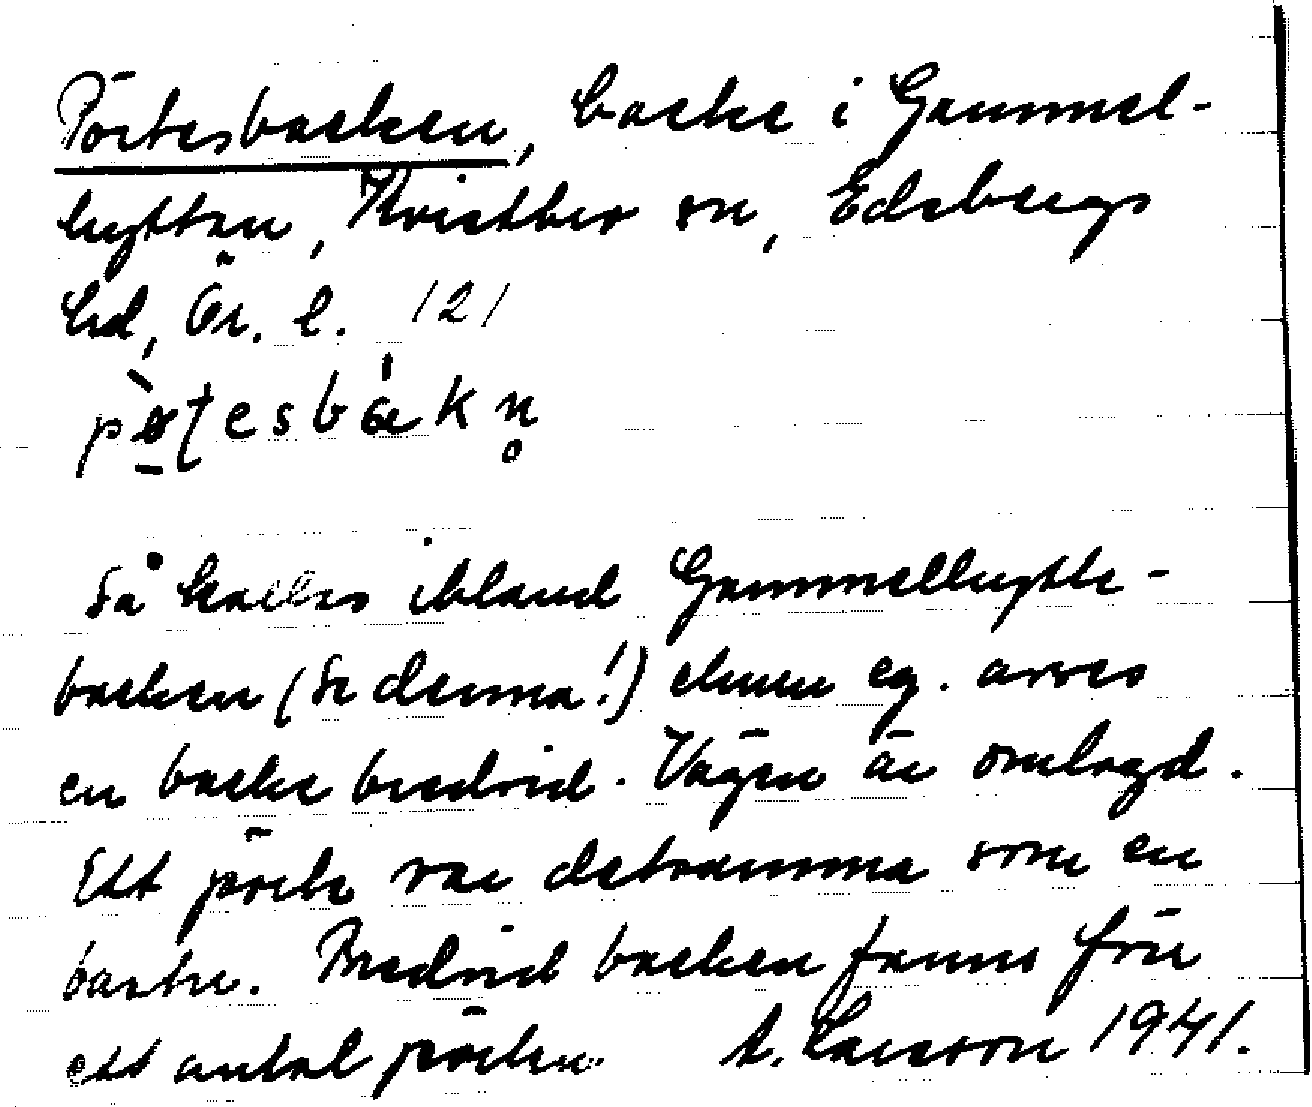 Pörtesbacken, backe i Gammel-
hyttan, Kvistbro sn, Edsbergs
hd, Ör. l. 121
pø̀ʈesbákn̥
Så kallas ibland Gammelhytte-
backen (se denna!) ehuru eg. avses
en backe bredvid. Vägen är omlagd.
Ett pörte var detsamma som en
barhe. Bredvid backen fanns förr
ett antal pörten. A. Larsson 1941.